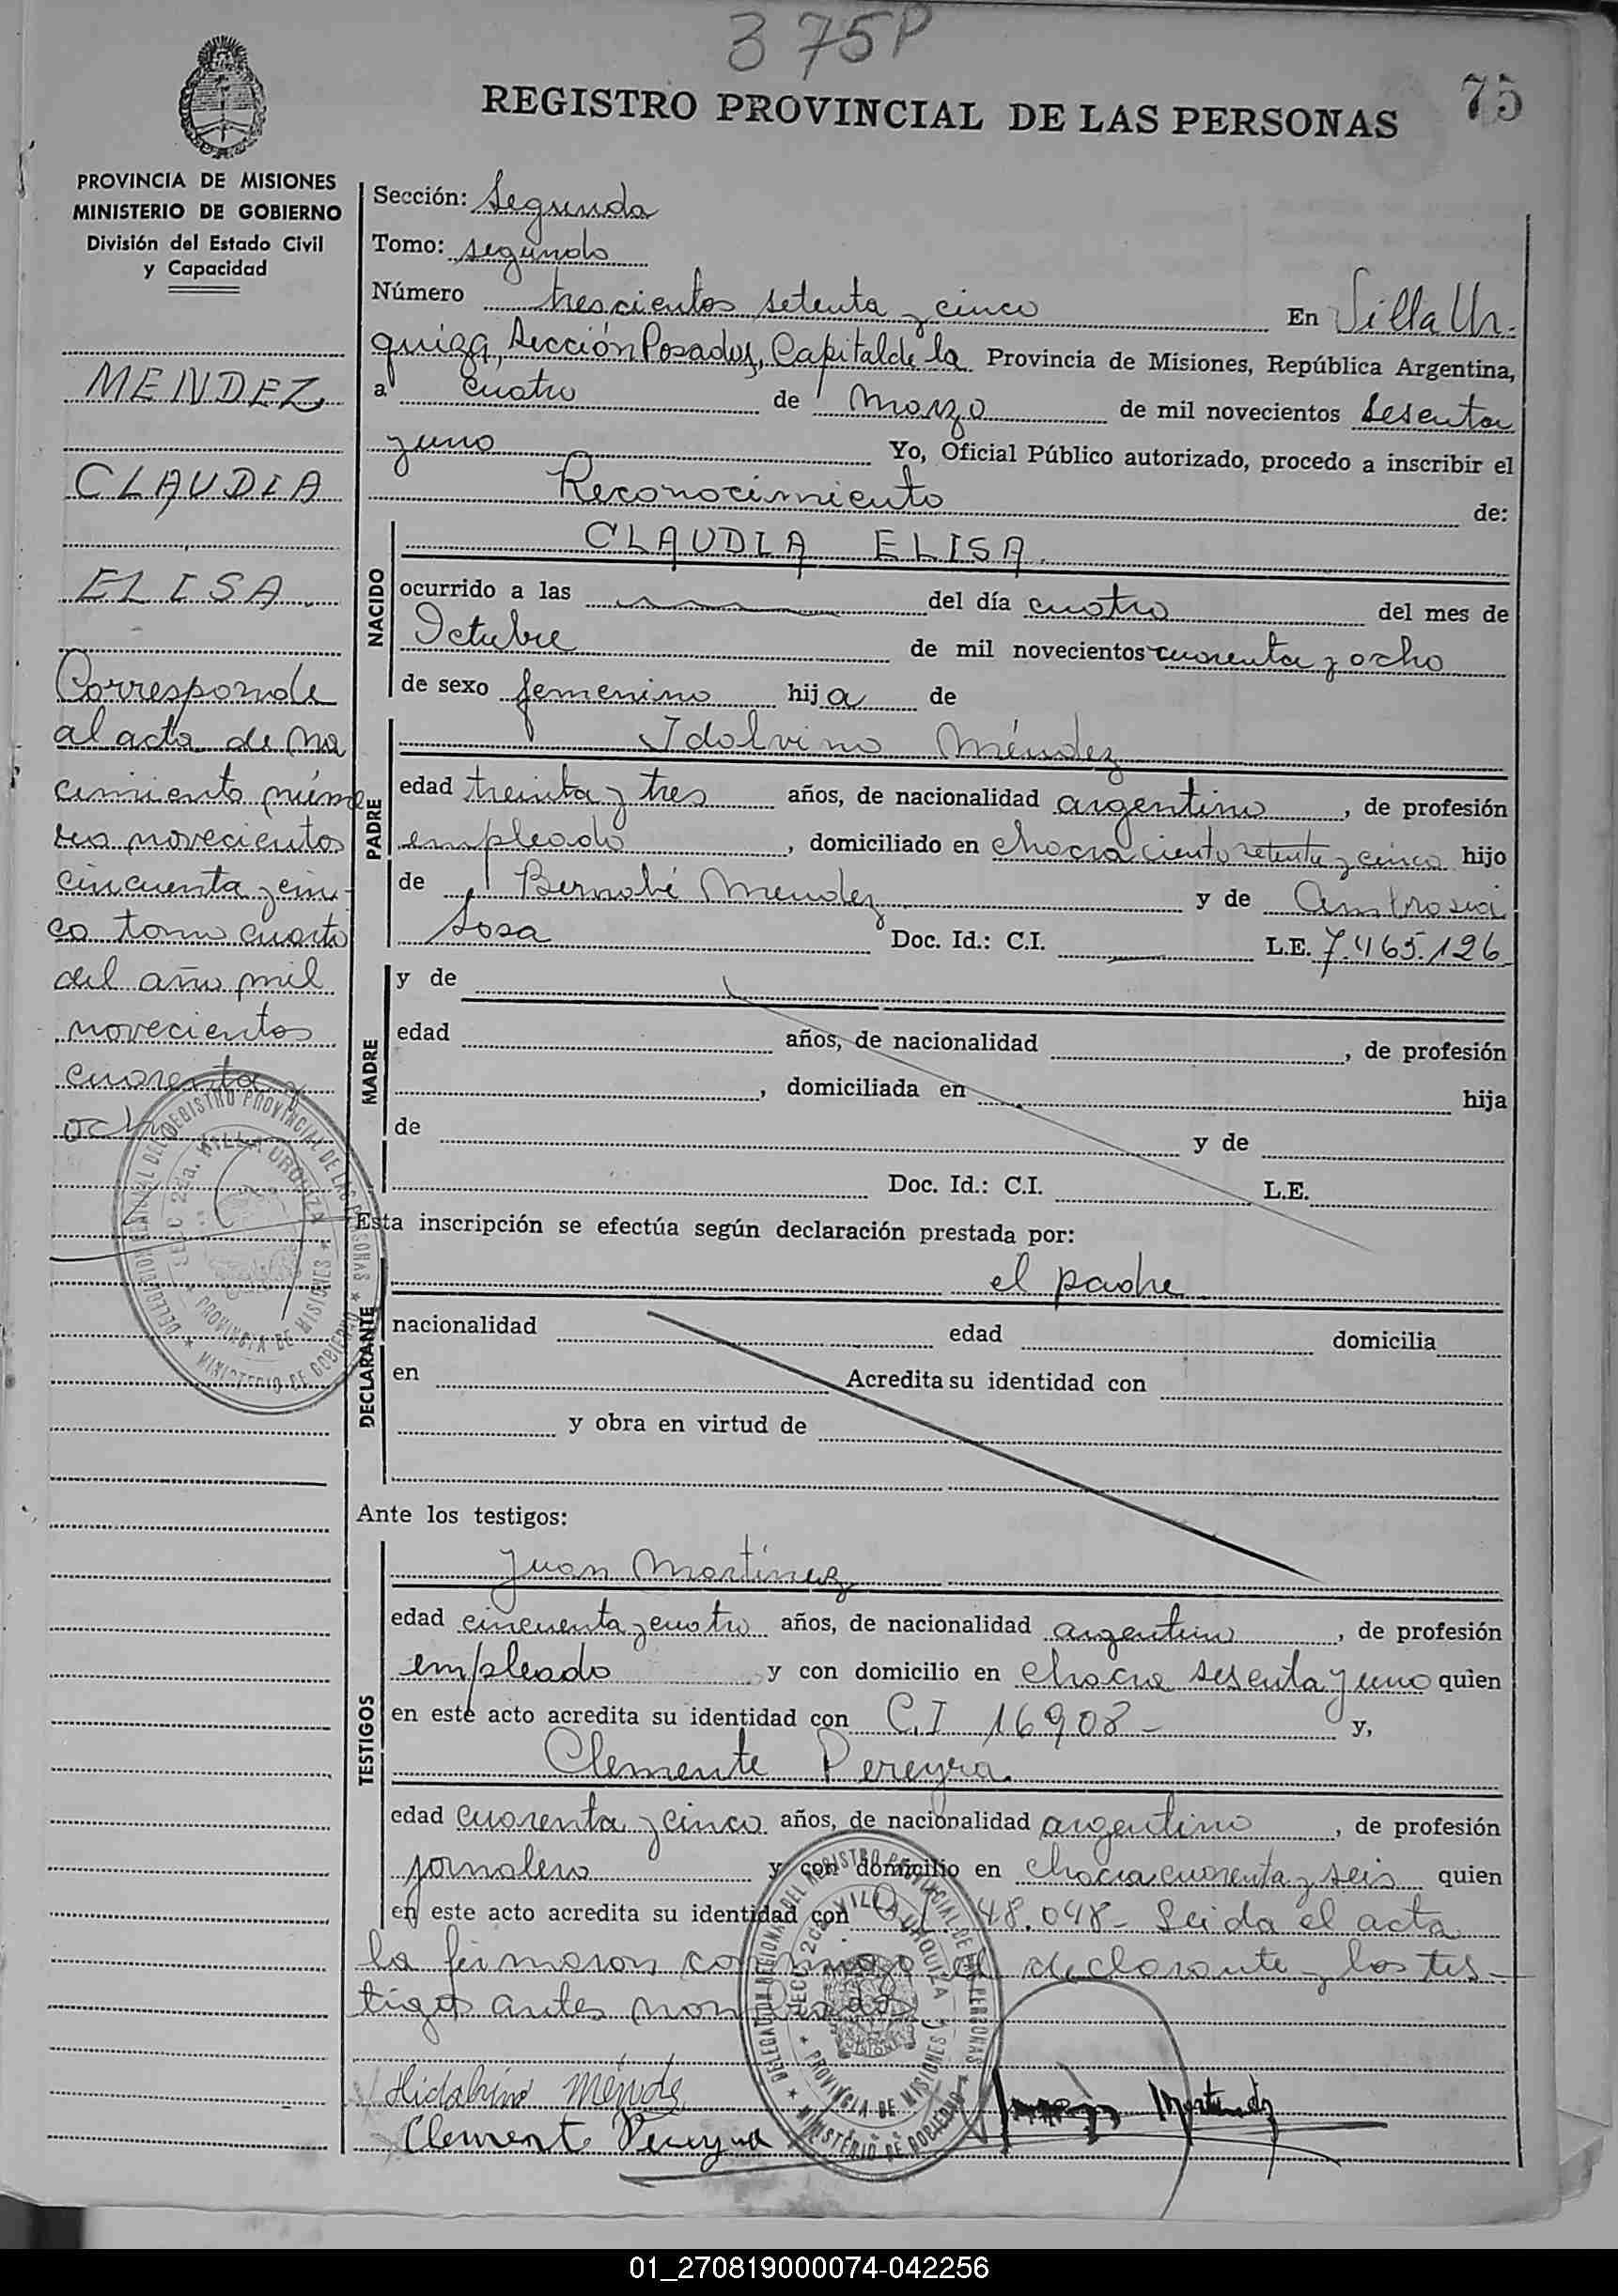 375P
75
REGISTRO PROVINCIAL DE LAS PERSONAS
PROVINCIA DE MISIONES
MINISTERIO DE GOBIERNO
División del Estado Civil
y Capacidad
MENDEZ
CLAUDIA
ELISA
Corresponde
al acta de na
cimiento núme
ro novecientos
cincuenta y cin-
co tomo cuarto
del año mil
novecientos
cuarenta y
ocho
Sección: Segunda
Tomo: segundo
Número trescientos setenta y cinco En Villa Ur-
quiza, Sección Posadas, Capital de la Provincia de Misiones, República Argentina,
a cuatro de Marzo de mil novecientos sesenta
y uno Yo, Oficial Público autorizado, procedo a inscribir el
Reconocimiento de:
NACIDO
CLAUDIA ELISA
ocurrido a las del día cuatro del mes de
Octubre de mil novecientos cuarenta y ocho
de sexo femenino hija de
PADRE
Idalvino Méndez
edad treinta y tres años, de nacionalidad argentino, de profesión
empleado, domiciliado en chacra ciento setenta y cinco hijo
de Bernabé Mendez y de Ambrosia
Sosa Doc. Id.: C.I. L.E. 7.465.126
MADRE
y de
edad años, de nacionalidad , de profesión
, domiciliada en hija
de y de
Doc. Id.: C.I. L.E.
Esta inscripción se efectúa según declaración prestada por:
DECLARANTE
el padre
nacionalidad edad domicilia
en Acredita su identidad con
y obra en virtud de
Ante los testigos:
TESTIGOS
Juan Martinez
edad cincuenta y cuatro años, de nacionalidad argentino, de profesión
empleado y con domicilio en chacra sesenta y uno quien
en este acto acredita su identidad con C.I 16908- y,
Clemente Pereyra
edad cuarenta y cinco años, de nacionalidad argentino, de profesión
jornalero y con domicilio en chacra cuarenta y seis quien
en este acto acredita su identidad con 48.048- Leida el acta
la firmaron conmigo el declarante y los tes-
tigos antes nombrados
DELEGACION REGIONAL DEL REGISTRO PROVINCIAL DE LAS PERSONAS
SECC 2da. VILLA URQUIZA
PROVINCIA DE MISIONES
MINISTERIO DE GOBIERNO
Méndez
Clemente Pereyra
01_270819000074-042256